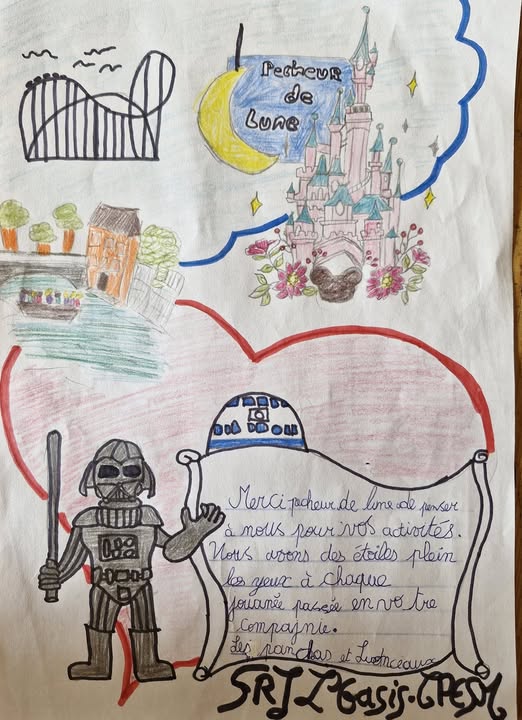 Pecheur
de
Lune
Merci pecheur de lune de penser
à nous pour vos activités.
Nous avons des étoiles plein
les yeux à chaque
jounée passée en vo tre
compagnie.
Les pandas et